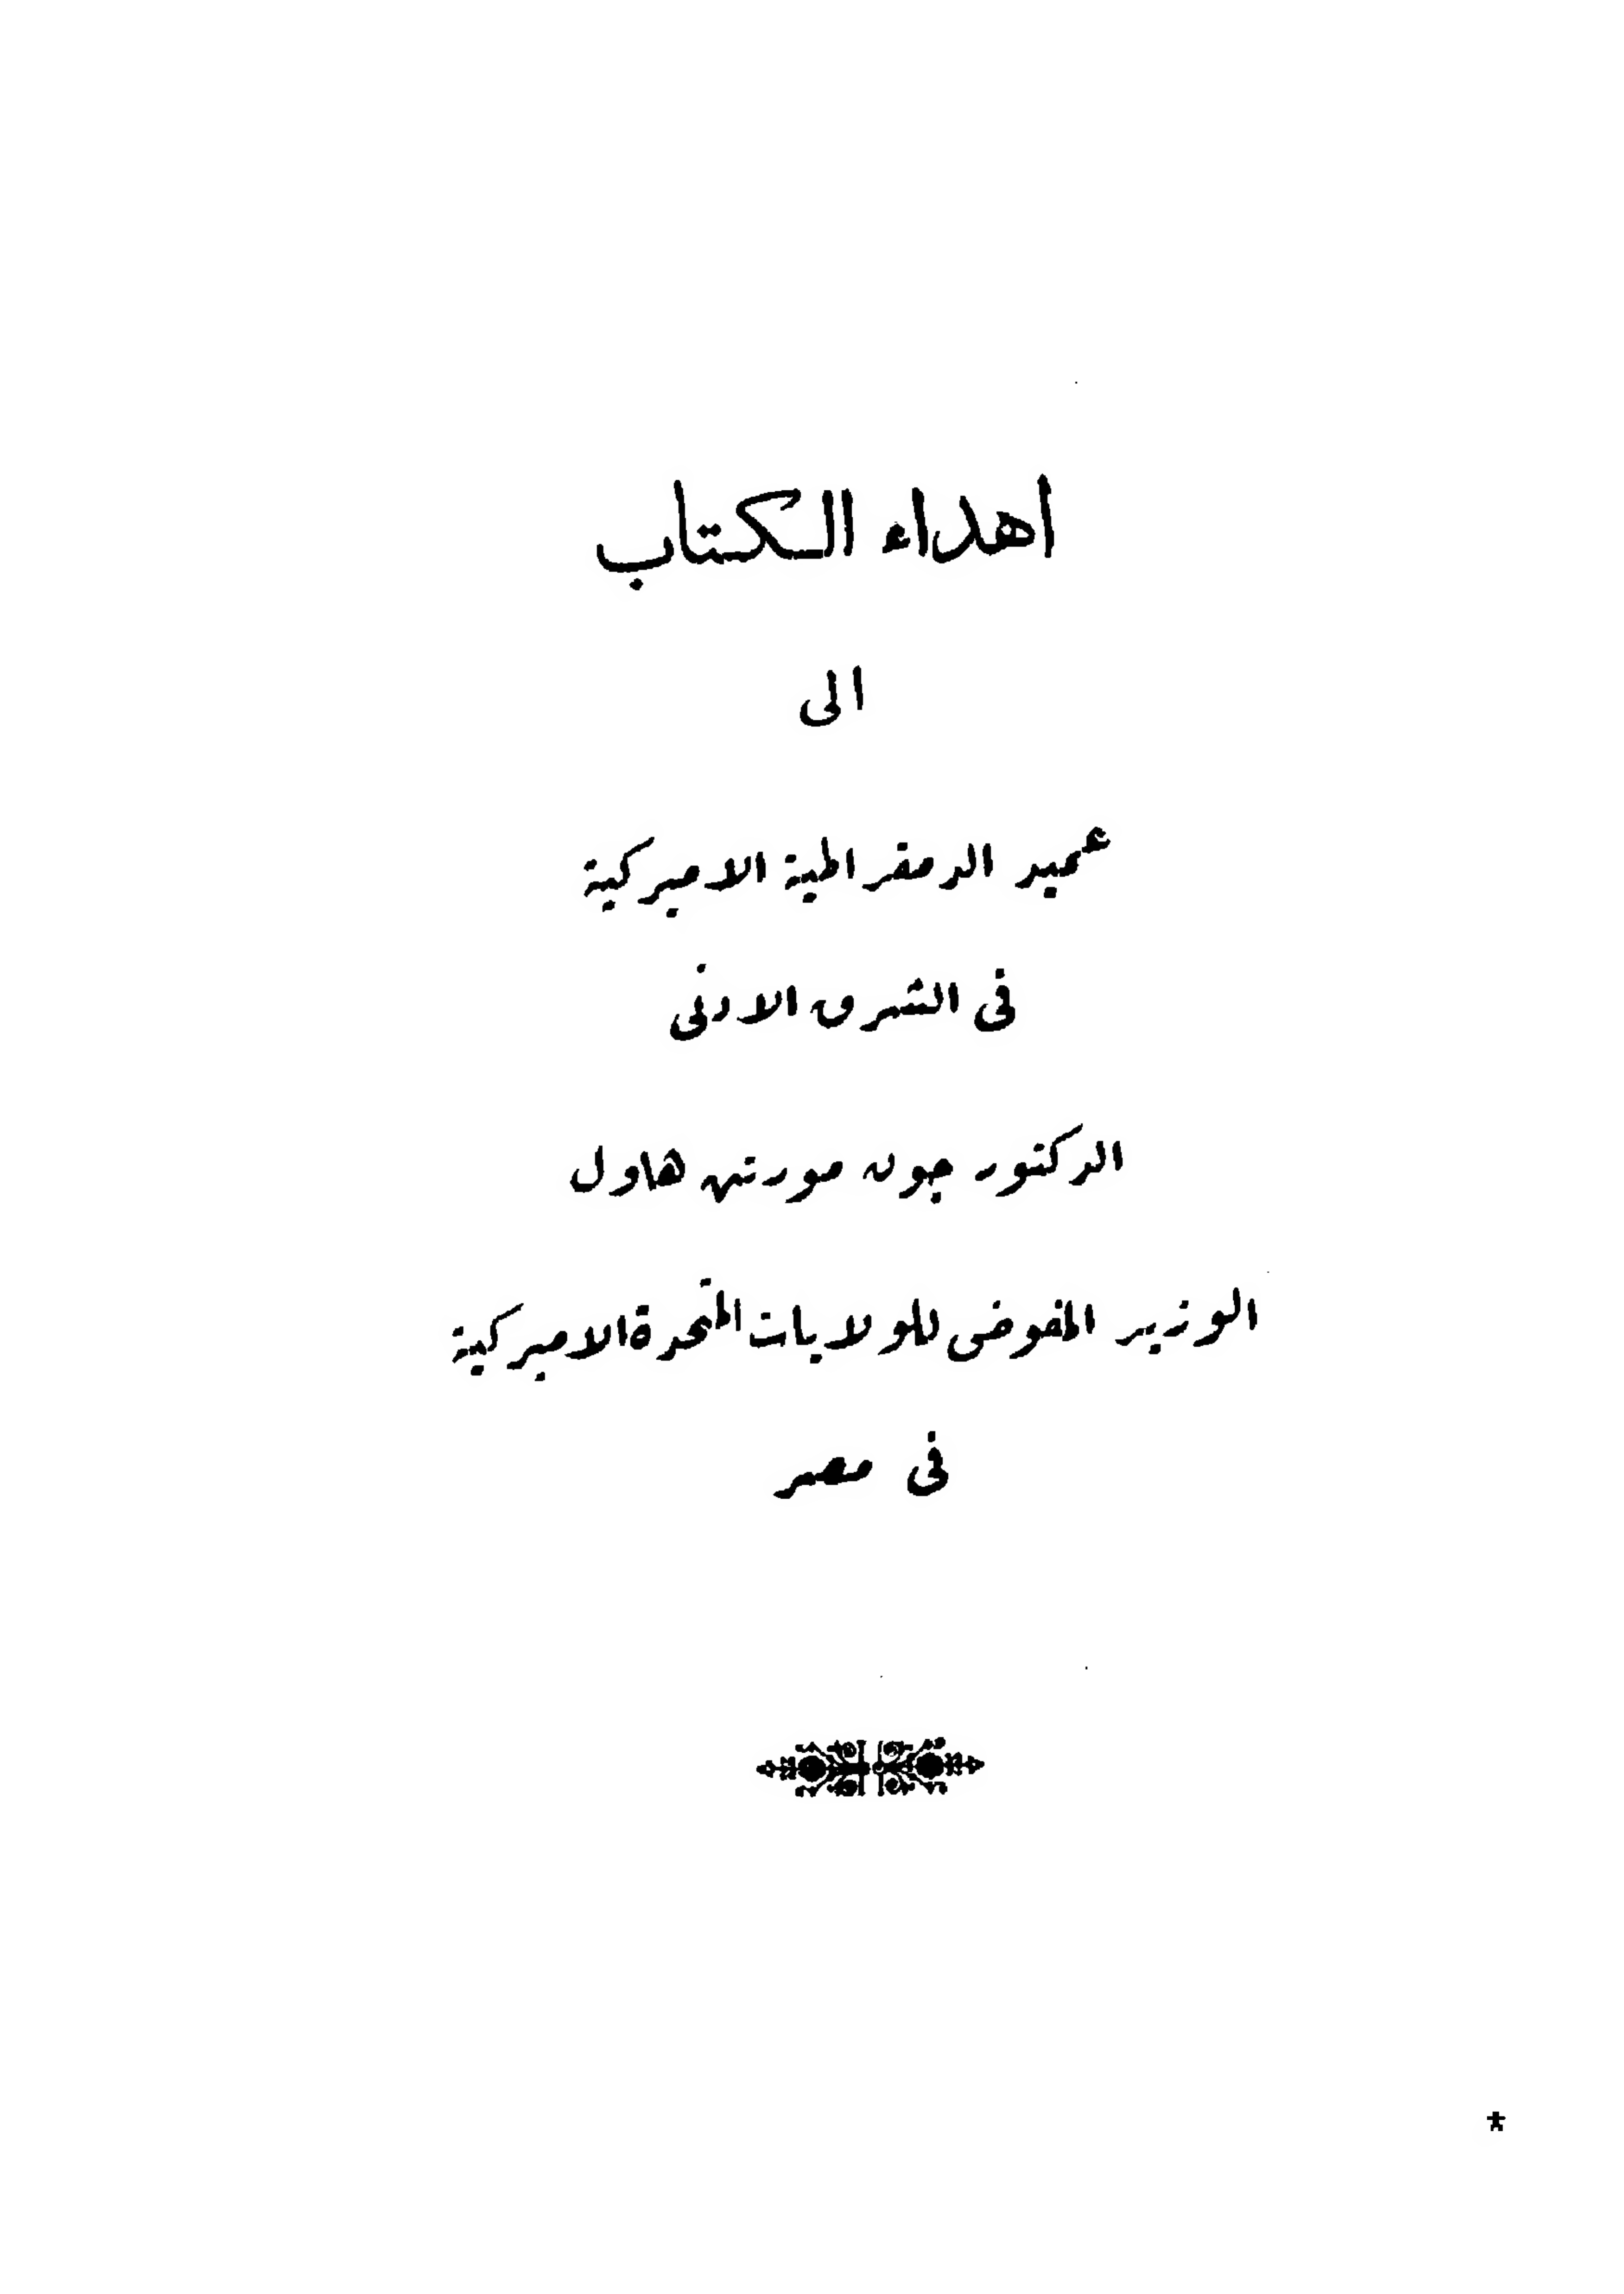 اهداء الكتاب
الى
عميد الدمقراطية الاميركية
فى الشرق الادنى
الدكتور جون مورتن هاول
الوزير المفوض للولايات المتحدة الاميركية
فى مصر
*